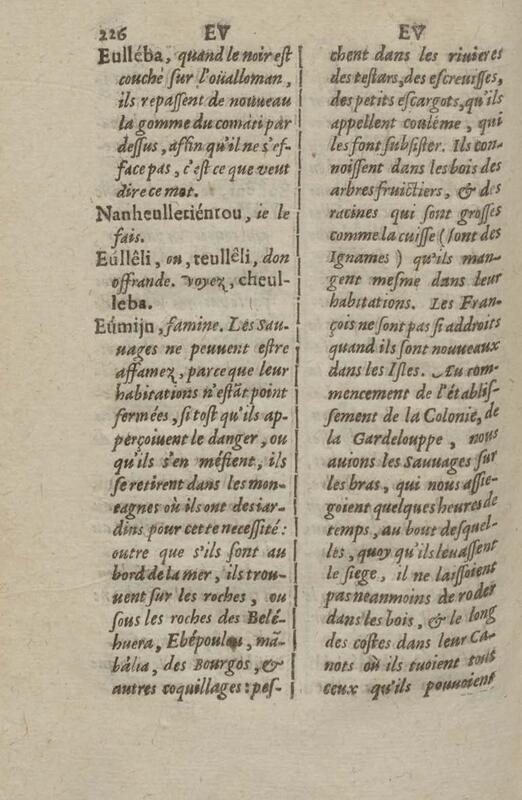 226 EV EV
Eulléba, quand le noir est
couché sur l'oüalloman,
ils repassent de nouueau
la gomme du comáti par
dessus, affin qu'il ne s'ef-
face pas, c'est ce que veut
dire ce mot.
Nanheulletiéntou, ie le
fais.
Eúllêli, ou, teullêli, don
offrande. voyez, cheul-
leba.
Eúmijn, famine. Les Sau-
uages ne peuuent estre
affamez, parce que leur
habitations n'estãt point
fermées, si tost qu'ils ap-
perçoiuent le danger, ou
qu'ils s'en méfient, ils
se retirent dans les mon-
tagnes où ils ont des iar-
dins pour cette necessité:
outre que s'ils sont au
bord de la mer, ils trou-
uent sur les roches, ou
sous les roches des Belé-
huera, Ebépoulou, mã-
bália, des Bourgos, &
autres coquillages: pes-
chent dans les riuieres
des testars, des escreuisses,
des petits escargots, qu'ils
appellent coulême, qui
les font subsister. Ils con-
noissent dans les bois des
arbres fruictiers, & des
racines qui sont grosses
comme la cuisse (sont des
Ignames) qu'ils man-
gent mesme dans leur
habitations. Les Fran-
çois ne sont pas si addroits
quand ils sont nouueaux
dans les Isles. Au com-
mencement de l'établis-
sement de la Colonie, de
la Gardelouppe, nous
auions les Sauuages sur
les bras, qui nous assie-
goient quelques heures de
temps, au bout desquel-
les, quoy qu'ils leuassent
le siege, il ne laissoient
pas neanmoins de roder
dans les bois, & le long
des costes dans leur Ca-
nots où ils tuoient tous
ceux qu'ils pouuoient